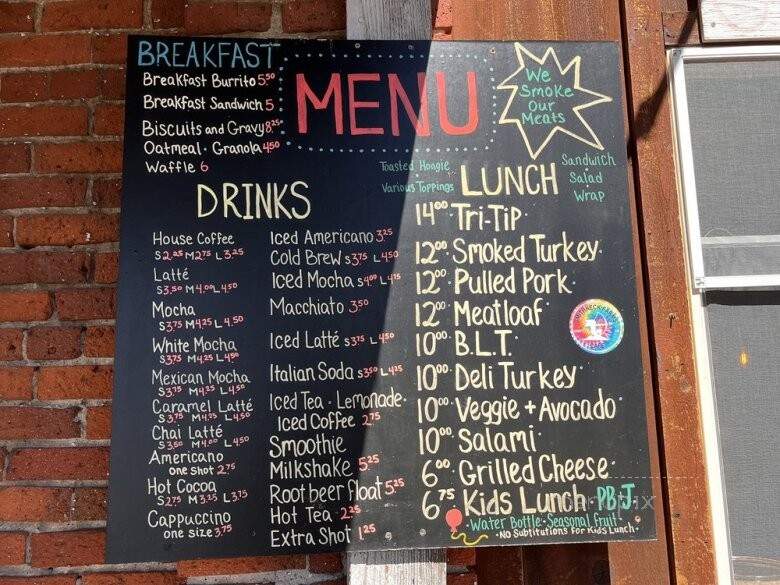 BREAKFAST
Breakfast Burrito 5.50
Breakfast Sandwich 5
Biscuits and Gravy 8.25
Oatmeal · Granola 4.50
Waffle 6
MENU
We
Smoke
Our
Meats
DRINKS
House Coffee
S 2.25 M 2.75 L 3.25
Latté
S 3.50 M 4.00 L 4.50
Mocha
S 3.75 M 4.25 L 4.50
White Mocha
S 3.75 M 4.25 L 4.50
Mexican Mocha
S 3.75 M 4.25 L 4.50
Caramel Latté
S 3.75 M 4.25 L 4.50
Chai Latté
S 3.50 M 4.00 L 4.50
Americano
one shot 2.75
Hot Cocoa
S 2.75 M 3.25 L 3.75
Cappuccino
one size 3.75
Iced Americano 3.25
Cold Brew S 3.75 L 4.50
Iced Mocha S 4.00 L 4.75
Macchiato 3.50
Iced Latté S 3.75 L 4.50
Italian Soda S 3.50 L 4.25
Iced Tea · Lemonade ·
Iced Coffee 2.75
Smoothie
Milkshake 5.25
Root beer float 5.25
Hot Tea · 2.25
Extra Shot 1.25
Toasted Hoagie
Various Toppings
LUNCH
Sandwich
Salad
Wrap
14.00 · Tri-Tip ·
12.00 · Smoked Turkey ·
12.00 · Pulled Pork ·
12.00 · Meatloaf ·
10.00 · B.L.T. ·
10.00 · Deli Turkey ·
10.00 · Veggie + Avocado ·
10.00 · Salami ·
6.00 · Grilled Cheese ·
6.75 Kids Lunch · PB.J.
· Water Bottle · Seasonal fruit ·
· No Subtitutions for Kids Lunch ·